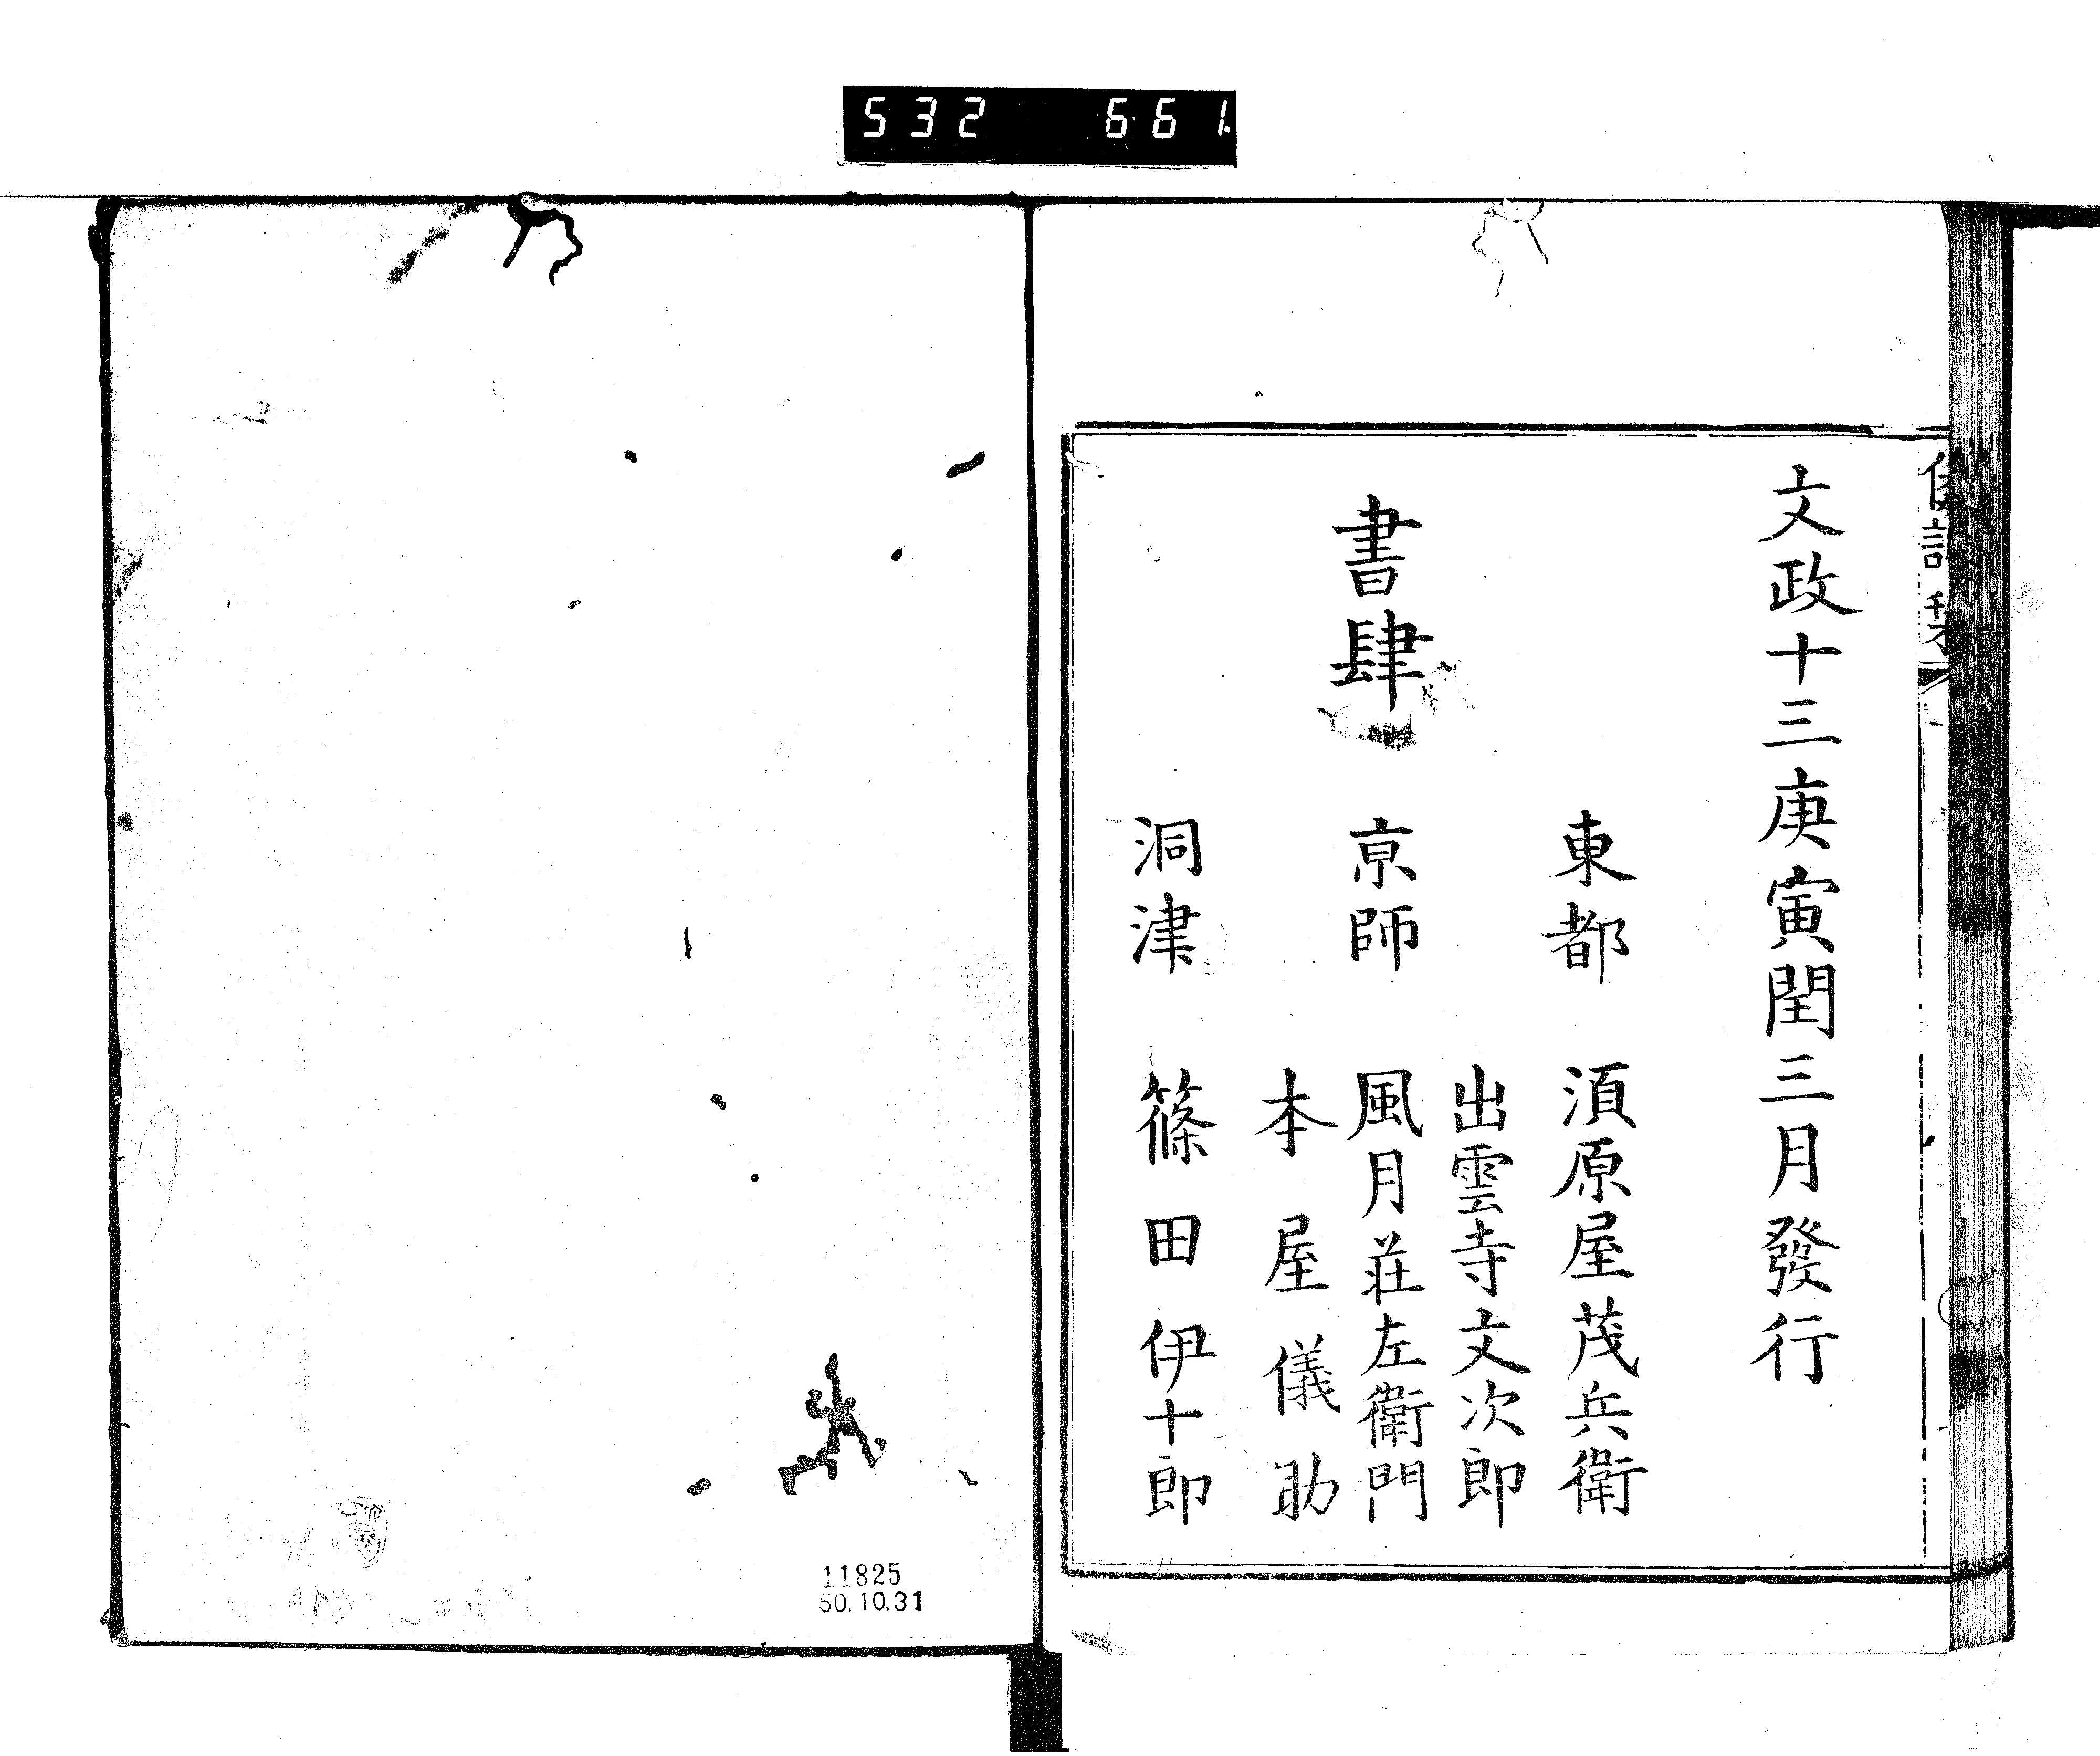 532 661
文政十三庚寅閏三月發行
書肆
東都 須原屋茂兵衛
出雲寺文次郎
京師 風月莊左衛門
本屋儀助
洞津 篠田伊十郎
11825
50.10.31